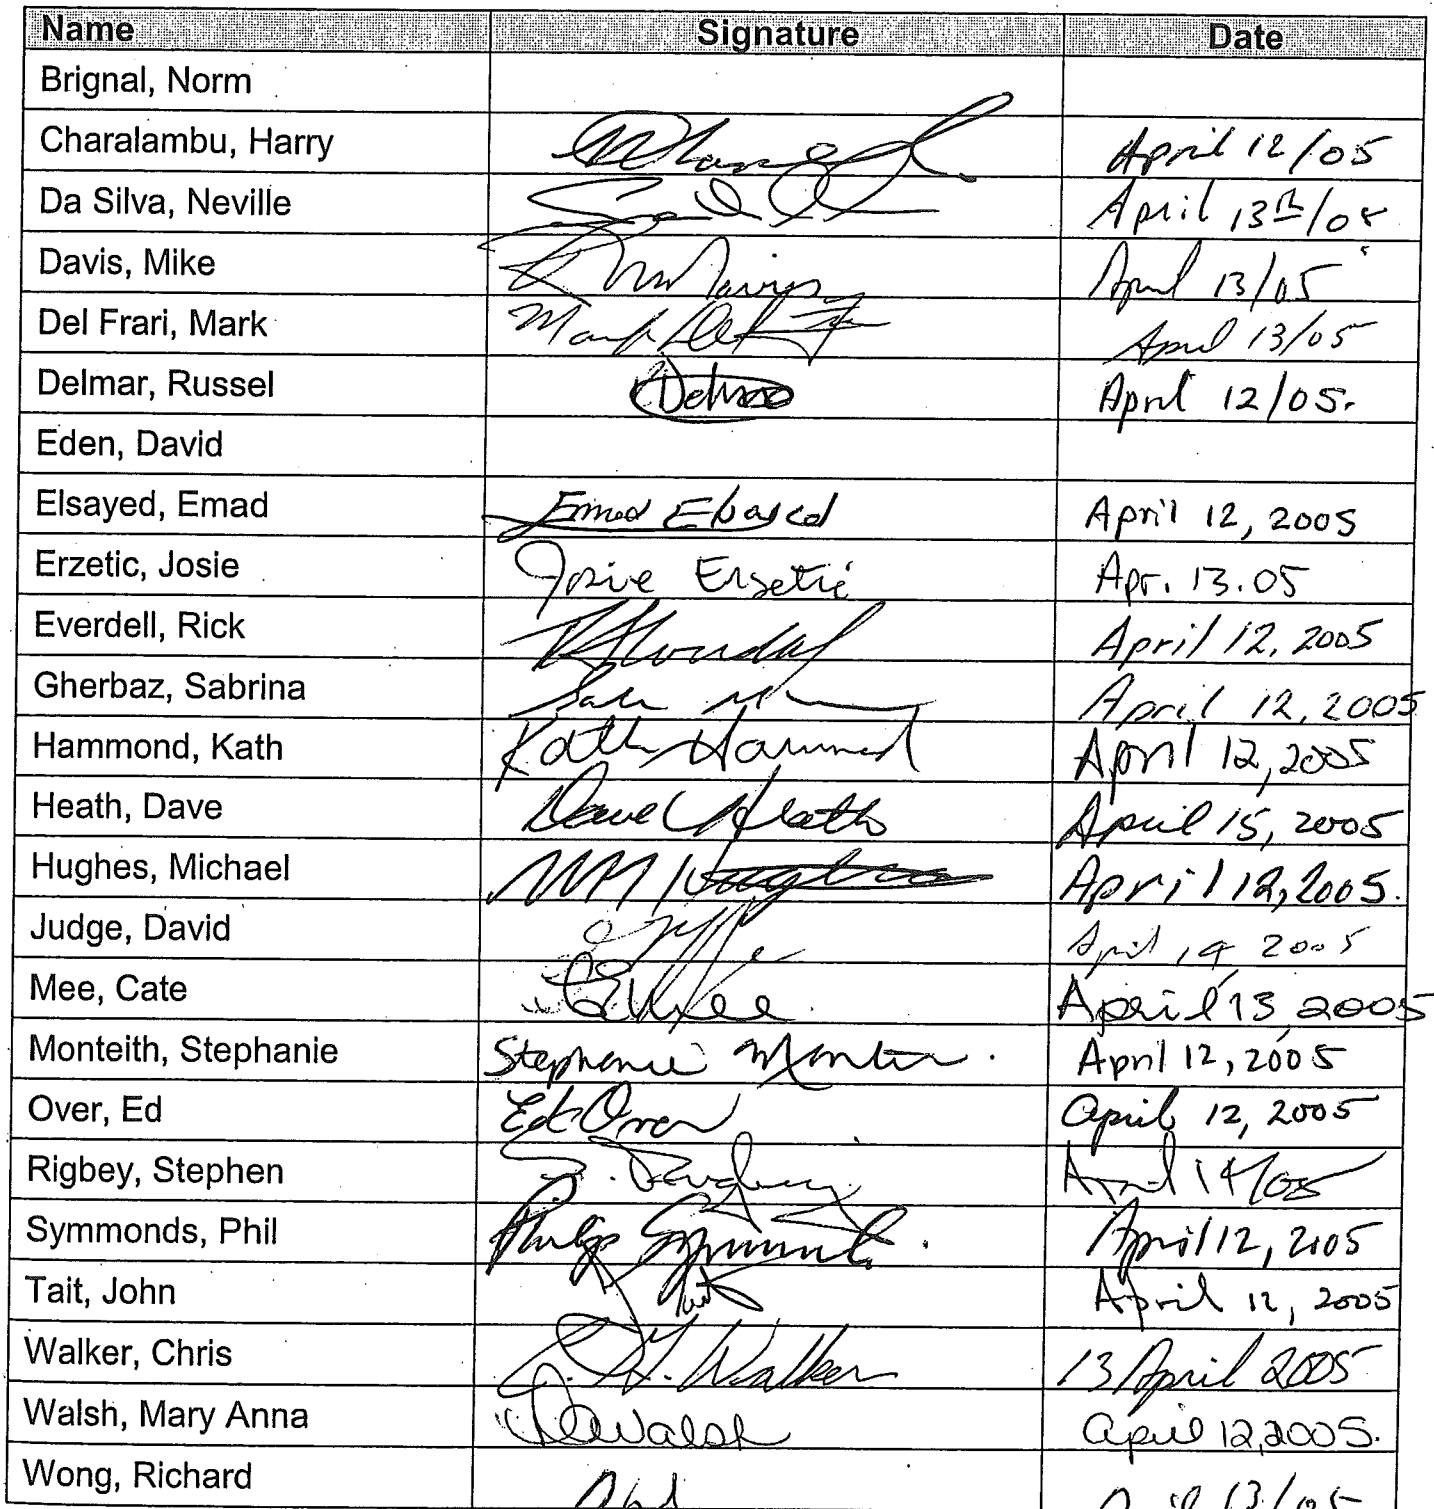 Name Signature Date
Brignal, Norm
Charalambu, Harry April 12/05
Da Silva, Neville April 13th/05
Davis, Mike April 13/05
Del Frari, Mark April 13/05
Delmar, Russel April 12/05.
Eden, David
Elsayed, Emad Emad Elsayed April 12, 2005
Erzetic, Josie Josie Erzetic Apr. 13.05
Everdell, Rick April 12, 2005
Gherbaz, Sabrina April 12, 2005
Hammond, Kath Kath Hammond April 12, 2005
Heath, Dave Dave Heath April 15, 2005
Hughes, Michael April 12, 2005.
Judge, David April 14, 2005
Mee, Cate April 13, 2005
Monteith, Stephanie Stephanie April 12, 2005
Over, Ed Ed Over April 12, 2005
Rigbey, Stephen April 14/05
Symmonds, Phil April 12, 2005
Tait, John Tait April 12, 2005
Walker, Chris Walker 13 April 2005
Walsh, Mary Anna Walsh April 12, 2005.
Wong, Richard April 13/05